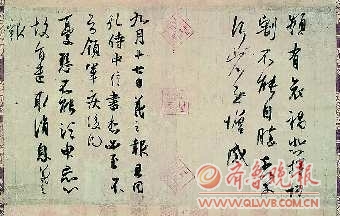 頻有哀禍悲摧切
割不能自勝奈何奈
何省慰增感
九月十七日羲之報且因
孔侍中信書想必至不
知領軍疾後問
憂懸不能須臾忘心
故旨遣取消息羲之
報
齐鲁晚报
QLWB.COM.CN